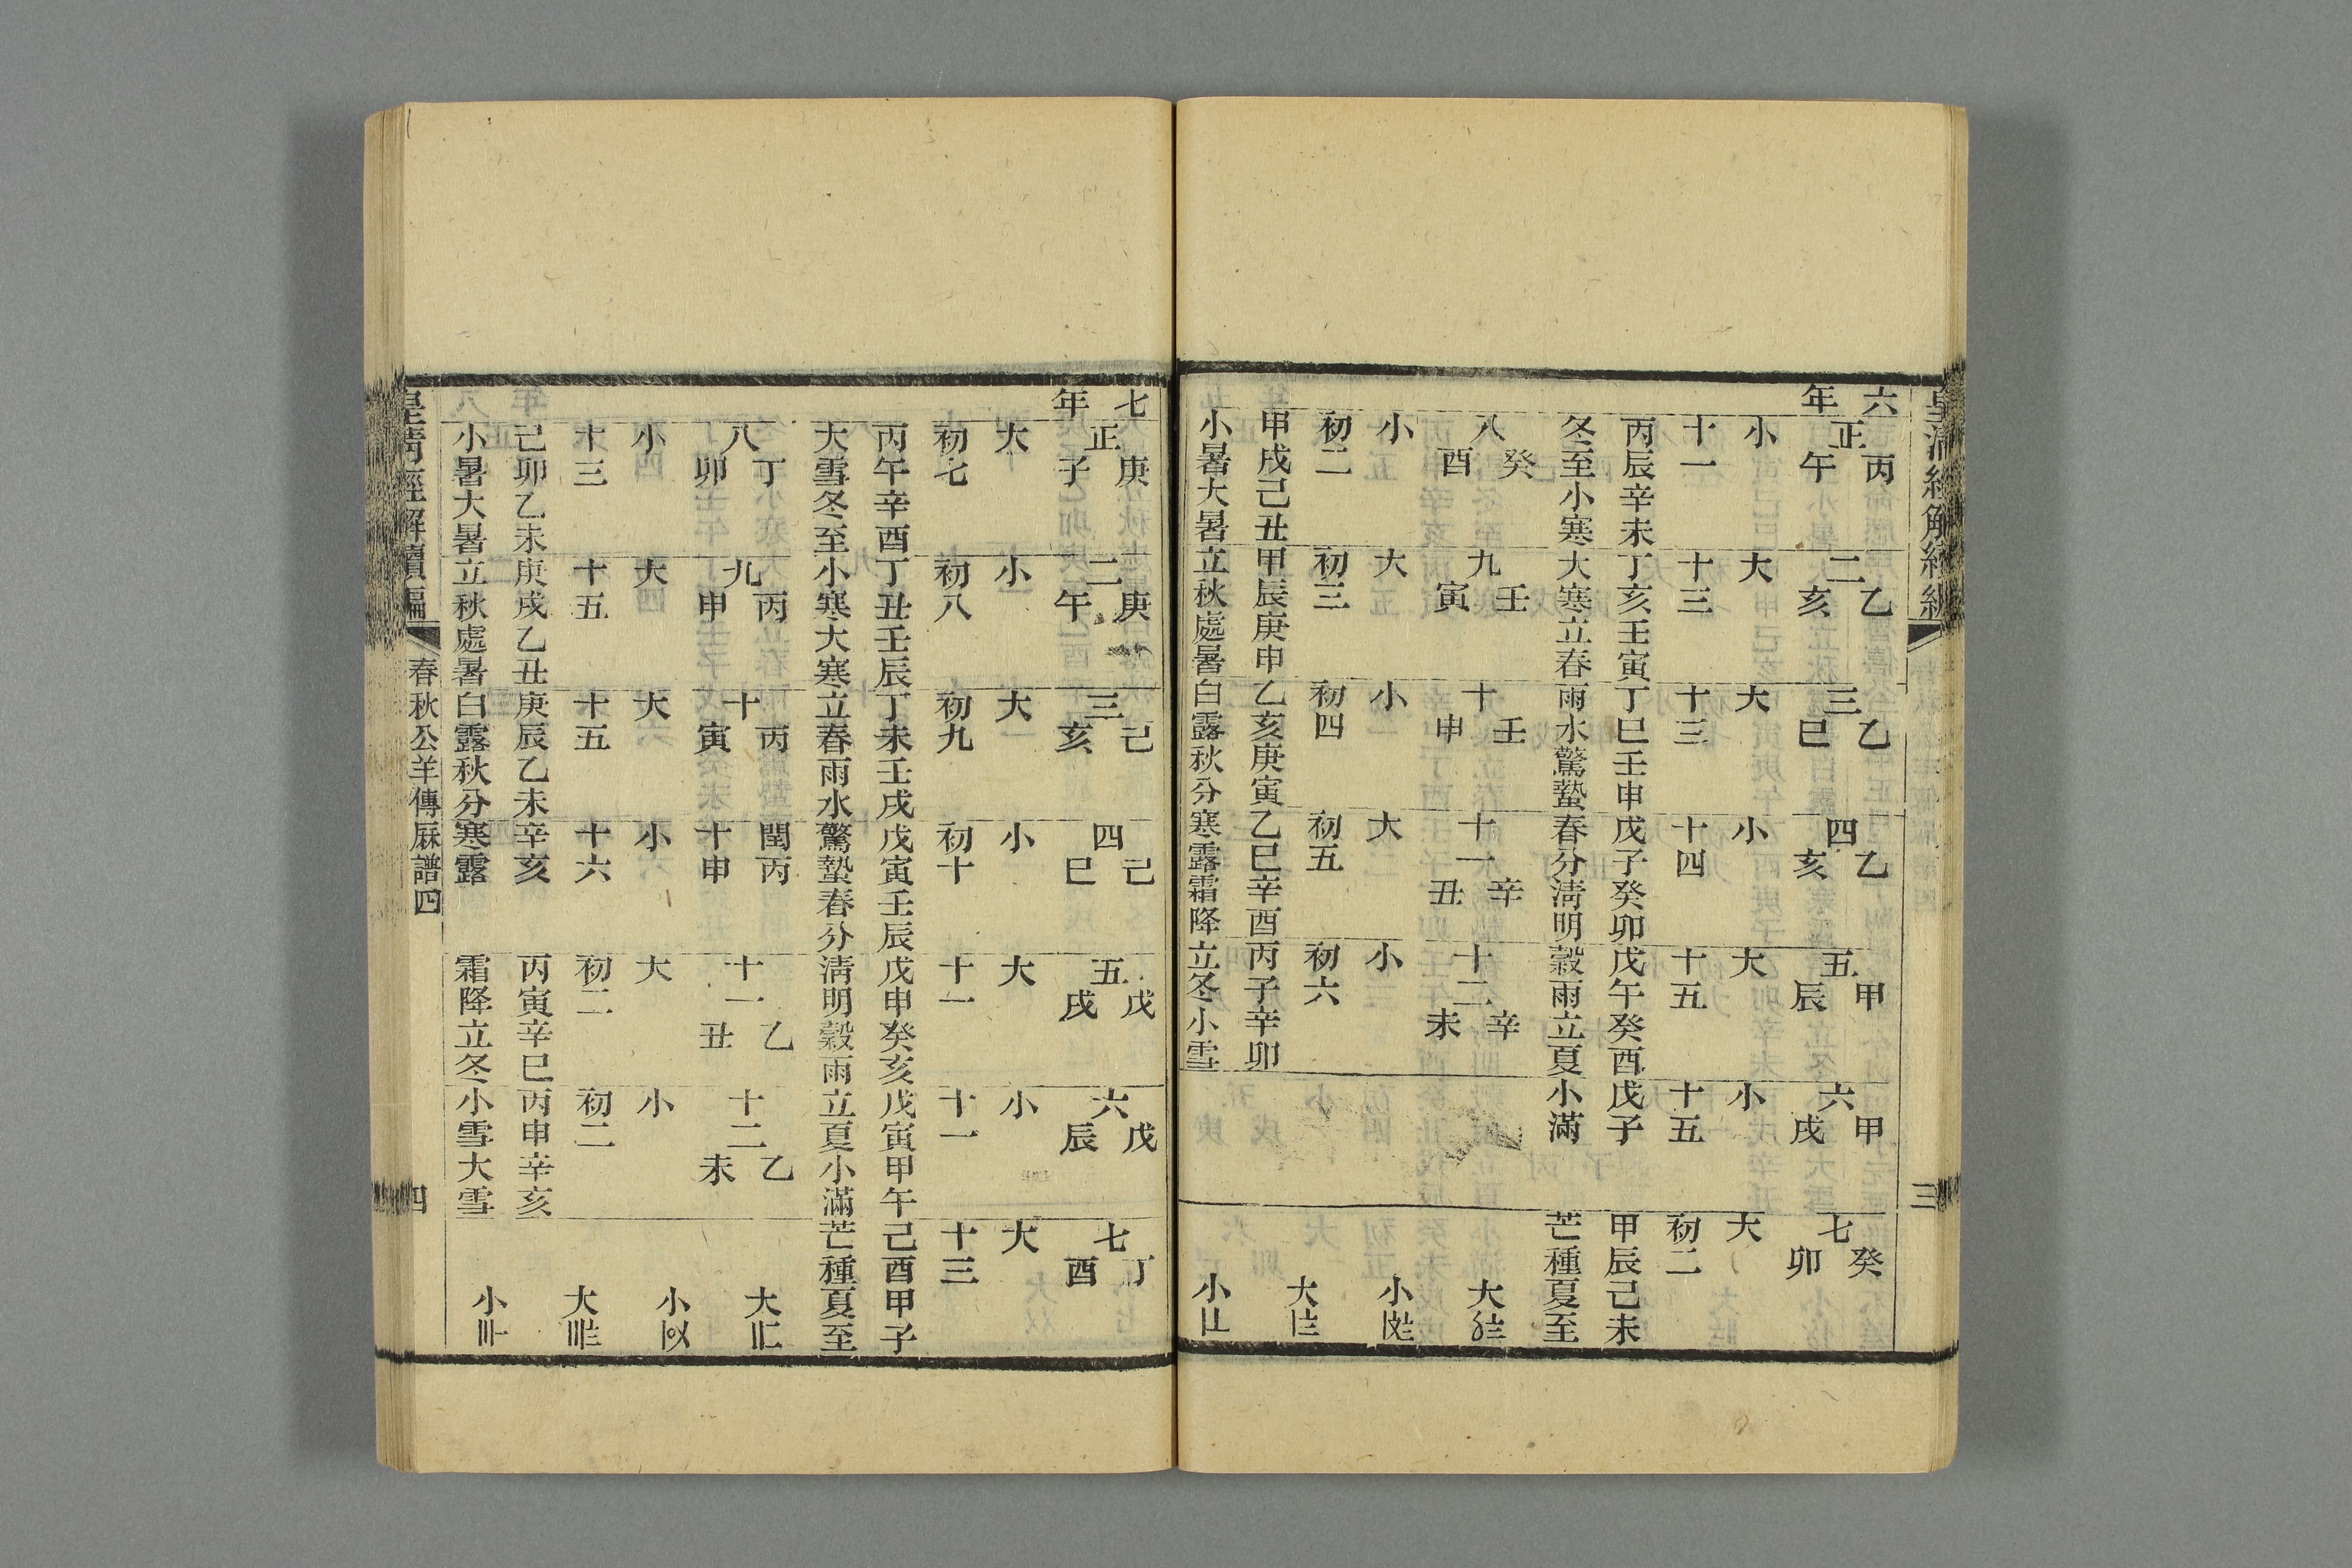 六年 正丙午 二乙亥 三乙巳 四乙亥 五甲辰 六甲戌 七癸卯
小 大 大 小 大 小 大
十一 十三 十三 十四 十五 十五 初二
丙辰辛未 丁亥壬寅 丁巳壬申 戊子癸卯 戊午癸酉 戊子 甲辰己未
冬至小寒 大寒立春 雨水驚蟄 春分清明 穀雨立夏 小滿 芒種夏至
八癸酉 九壬寅 十壬申 十一辛丑 十二辛未 大
小 大 小 大 小 小
初二 初三 初四 初五 初六 大
甲戌己丑 甲辰庚申 乙亥庚寅 乙巳辛酉 丙子辛卯
小暑大暑 立秋處暑 白露秋分 寒露霜降 立冬小雪 小
三
七年 正庚子 二庚午 三己亥 四己巳 五戊戌 六戊辰 七丁酉
大 小 大 小 大 小 大
初七 初八 初九 初十 十一 十一 十三
丙午辛酉 丁丑壬辰 丁未壬戌 戊寅壬辰 戊申癸亥 戊寅甲午 己酉甲子
大雪冬至 小寒大寒 立春雨水 驚蟄春分 清明穀雨 立夏小滿 芒種夏至
八丁卯 九丙申 十丙寅 閏十丙申 十一乙丑 十二乙未 大
小 大 大 小 大 小 小
十三 十五 十五 十六 初二 初二 大
己卯乙未 庚戌乙丑 庚辰乙未 辛亥 丙寅辛巳 丙申辛亥
小暑大暑 立秋處暑 白露秋分 寒露 霜降立冬 小雪大雪 小
皇清經解續編 春秋公羊傳厤譜四 四